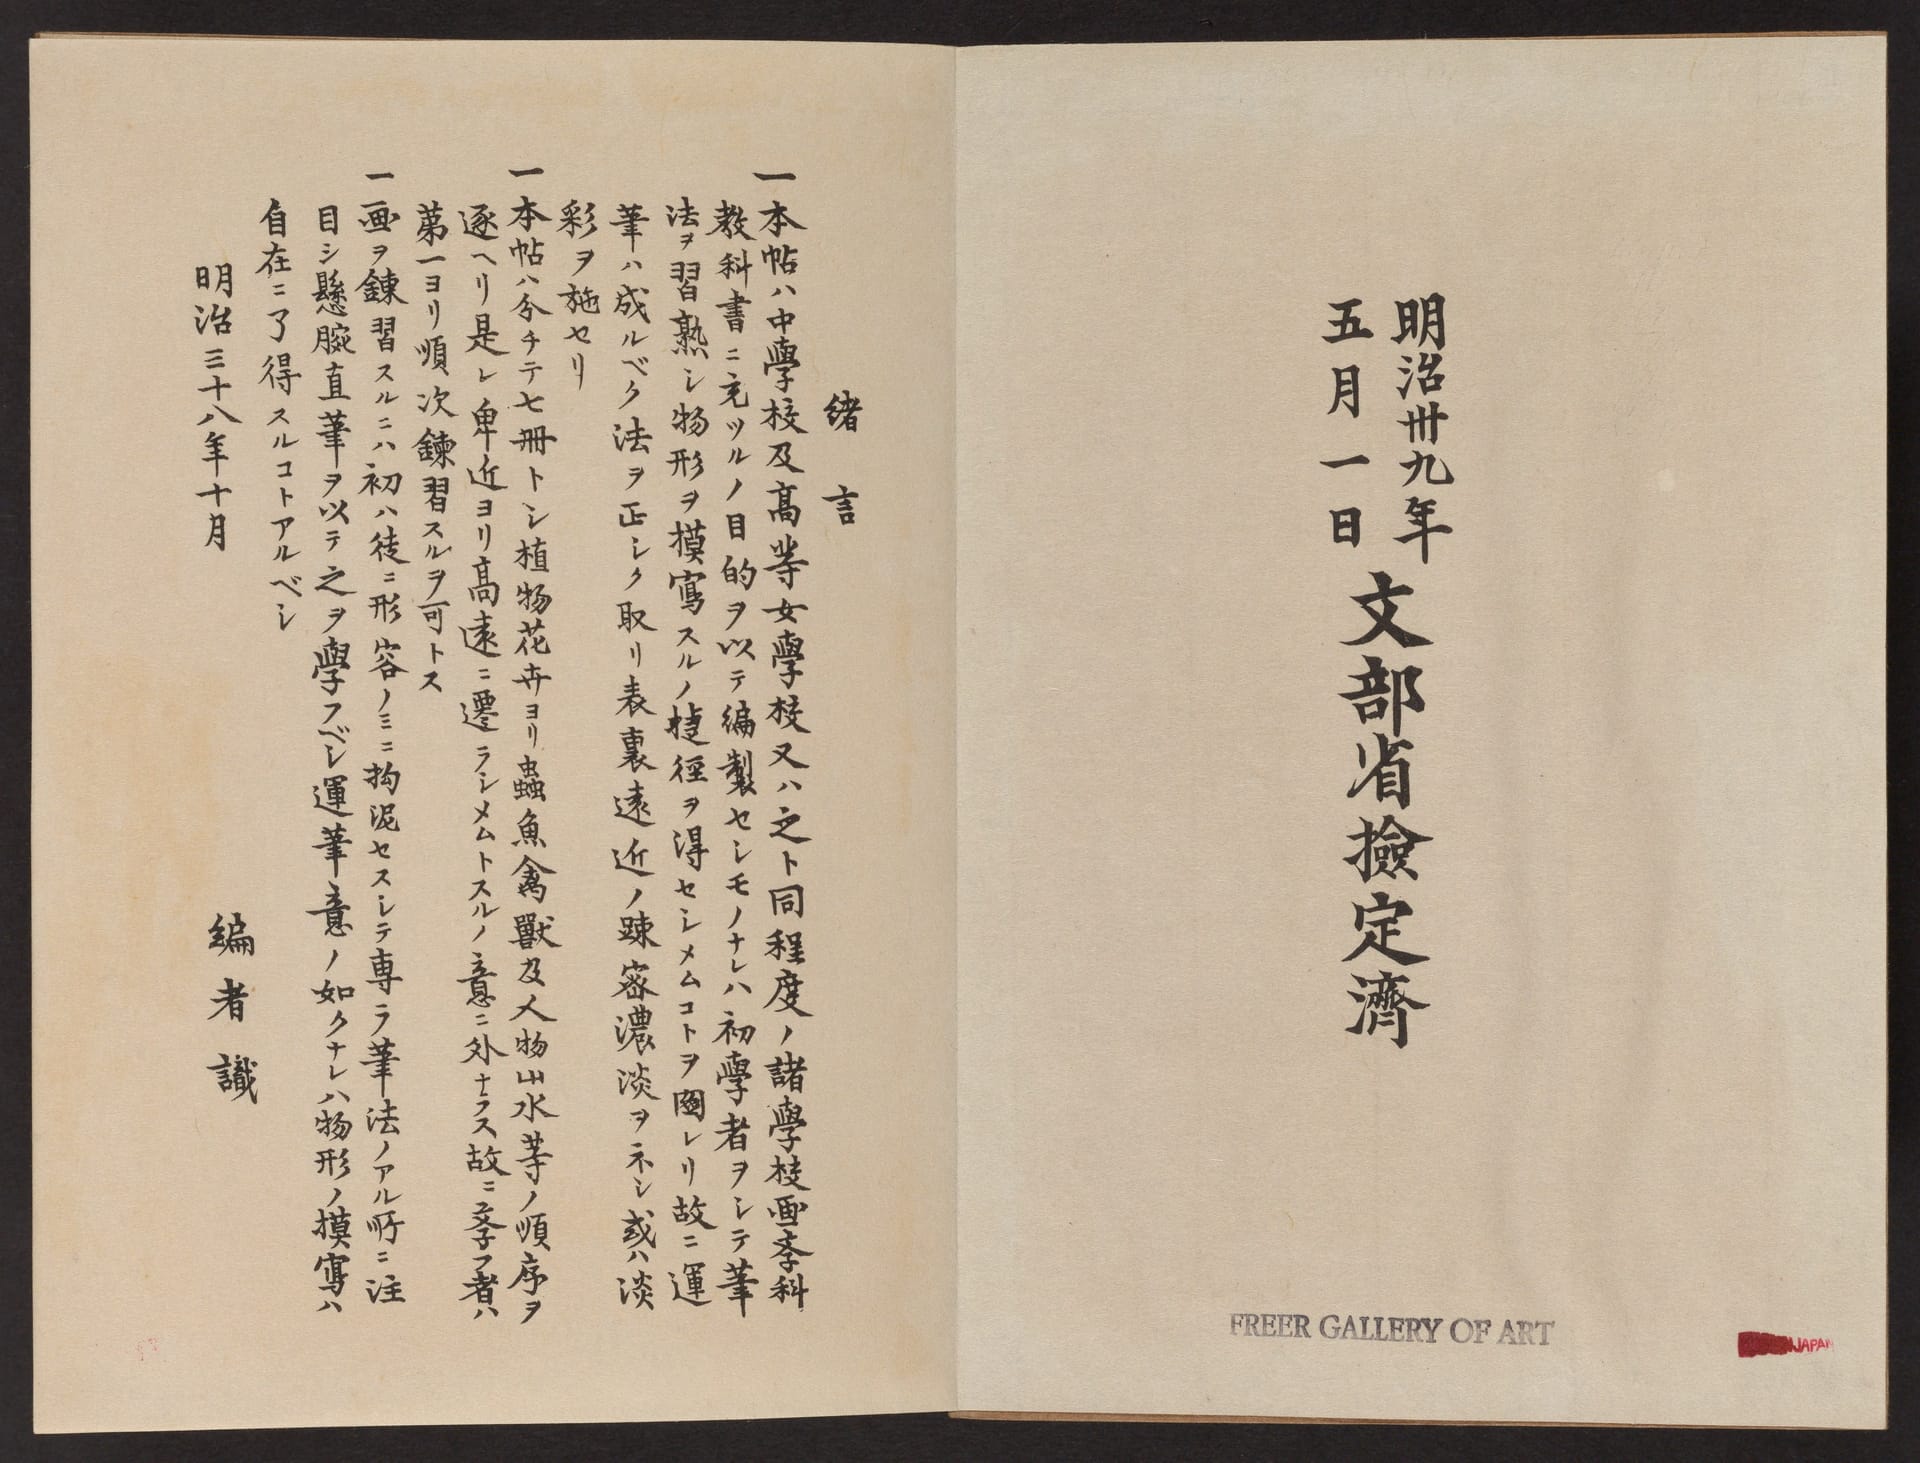 明治卅九年
五月一日
文部省撿定濟
FREER GALLERY OF ART
JAPAN
緒言
一本帖ハ中學校及高等女學校又ハ之ト同程度ノ諸學校画孝科
教科書ニ充ツルノ目的ヲ以テ編製セシモノナレハ初學者ヲシテ筆
法ヲ習熟シ物形ヲ摸寫スルノ捷徑ヲ得セシメムコトヲ圖レリ故ニ運
筆ハ成ルベク法ヲ正シク取リ表裏遠近ノ踈密濃淡ヲ示シ或ハ淡
彩ヲ施セリ
一本帖ハ分チテ七冊トシ植物花卉ヨリ蟲魚禽獸及人物山水等ノ順序ヲ
逐ヘリ是レ卑近ヨリ高遠ニ遷ラシメムトスルノ意ニ外ナラス故ニ孝フ者ハ
第一ヨリ順次鍊習スルヲ可トス
一画ヲ鍊習スルニハ初ハ徒ニ形容ノミニ拘泥セスシテ専ラ筆法ノアル所ニ注
目シ懸腕直筆ヲ以テ之ヲ學フベシ運筆意ノ如クナレハ物形ノ摸寫ハ
自在ニ了得スルコトアルベシ
明治三十八年十月
編者識